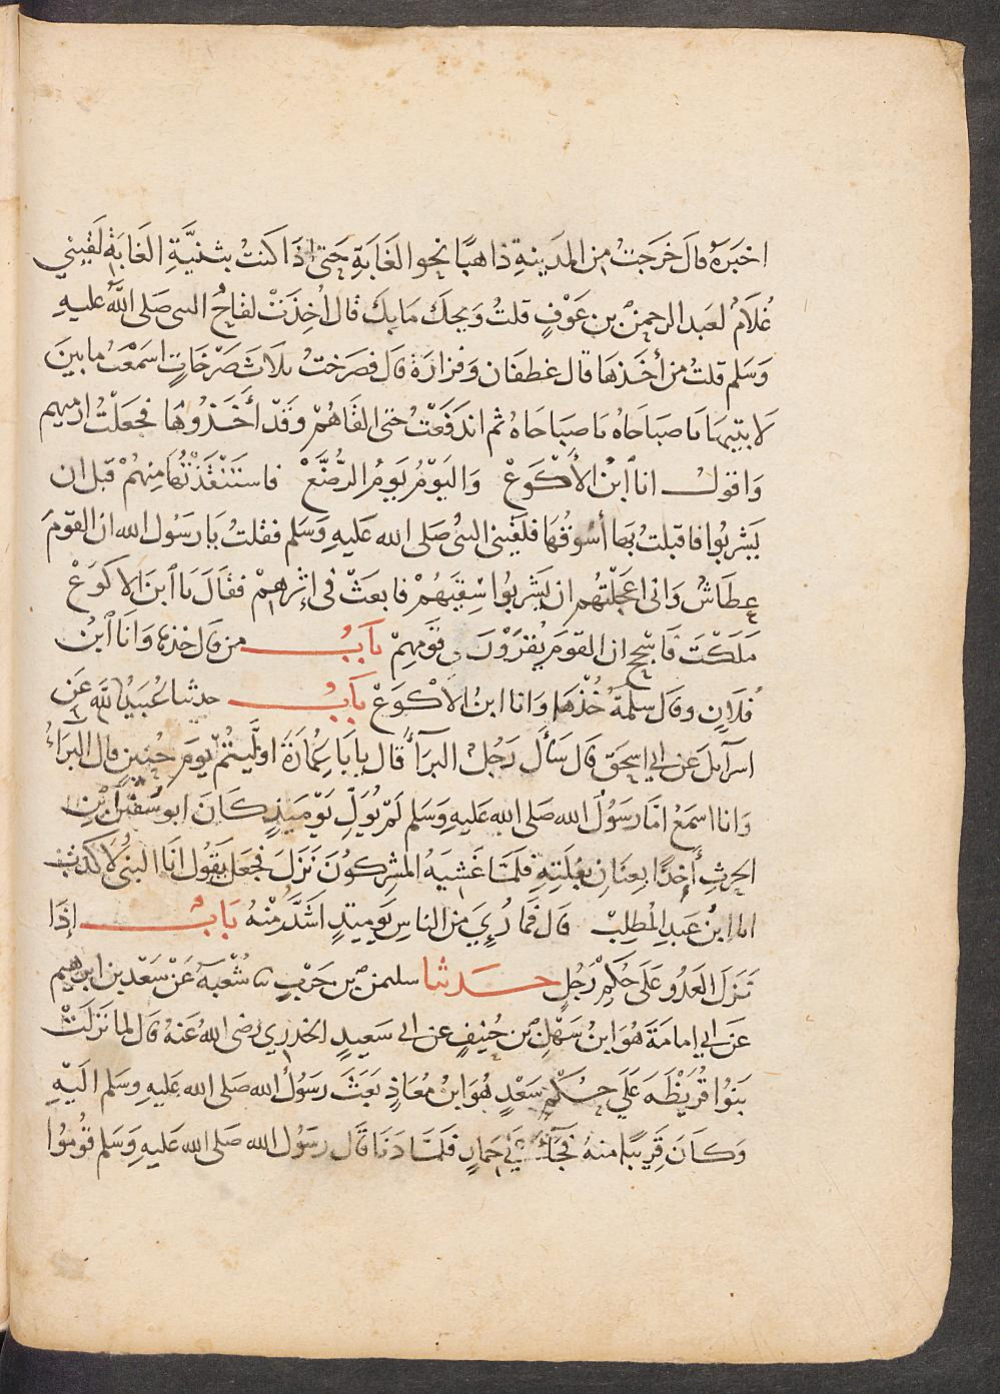 اخبره قال خرجت من المدينة ذاهبا نحو الغابة حتى اذا كنت بثنية الغابة لقيني
غلام لعبد الرحمن بن عوف قلت ويحك ما بك قال اخذت لقاح النبي صلى الله عليه
وسلم قلت من أخذها قال غطفان وفزارة قال فصرخت ثلاث صرخات اسمعت ما بين
لابتيها يا صباحاه يا صباحاه ثم اندفعت حتى القاهم وقد أخذوها فجعلت ارميهم
واقول انا ابن الأكوع واليوم يوم الرضع فاستنقذتها منهم قبل ان
يشربوا فاقبلت بها أسوقها فلقيني النبي صلى الله عليه وسلم فقلت يا رسول الله ان القوم
عطاش واني اعجلتهم ان يشربوا سقيهم فابعث في إثرهم فقال يا ابن الاكوع
ملكت فاسجح ان القوم يقرون في قومهم باب من قال خذها وانا ابن
فلان وقال سلمة خذها وانا ابن الأكوع باب حدثنا عبيد الله عن
اسرآيل عن ابي اسحق قال سأل رجل البرآ قال يا با عمارة اوليتم يوم حنين قال البراء
وانا اسمع اما رسول الله صلى الله عليه وسلم لم يول يوميذ كان ابو سفين بن
الحرث أخذا بعنان بغلته فلما غشيه المشركون نزل فجعل يقول انا النبي لا كذب
انا ابن عبد المطلب قال فما رءي من الناس يوميذ اشد منه باب إذا
نزل العدو على حكم رجل حدثنا سليمن بن حرب نا شعبة عن سعد بن ابرهيم
عن ابي امامة هو ابن سهل بن حنيف عن ابي سعيد الخدري رضى الله عنه قال لما نزلت
بنوا قريظة علي حكم سعد هو ابن معاذ بعث رسول الله صلى الله عليه وسلم اليه
وكان قريبا منه فجآء على حمار فلما دنا قال رسول الله صلى الله عليه وسلم قوموا